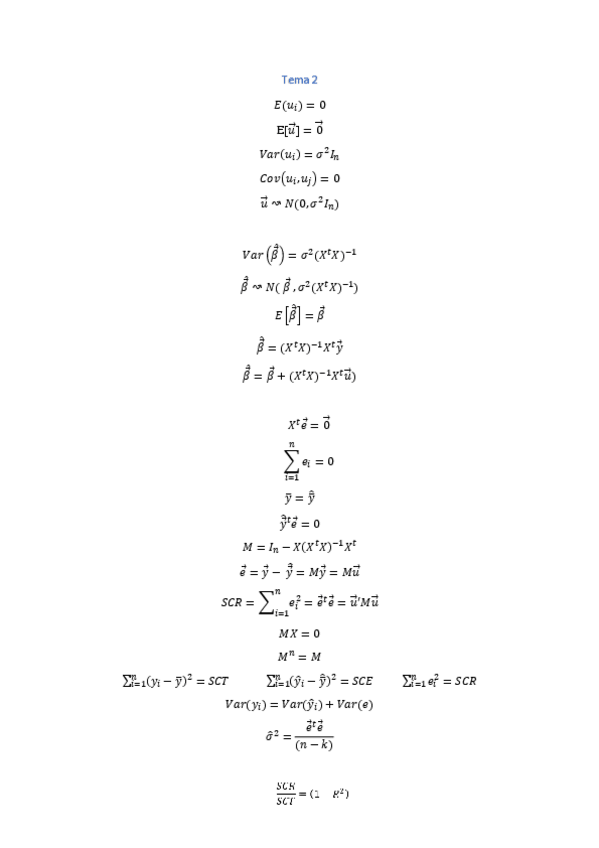 Tema 2
E(uᵢ) = 0
E[u⃗] = 0⃗
Var(uᵢ) = σ²Iₙ
Cov(uᵢ,uⱼ) = 0
u⃗ ⇝ N(0,σ²Iₙ)
Var(β⃗̂) = σ²(XᵗX)⁻¹
β⃗̂ ⇝ N( β⃗ ,σ²(XᵗX)⁻¹)
E[β⃗̂] = β⃗
β⃗̂ = (XᵗX)⁻¹Xᵗy⃗
β⃗̂ = β⃗ + (XᵗX)⁻¹Xᵗu⃗)
Xᵗe⃗ = 0⃗
∑ᵢ₌₁ⁿ eᵢ = 0
ȳ = ŷ̄
y⃗̂ᵗe⃗ = 0
M = Iₙ − X(XᵗX)⁻¹Xᵗ
e⃗ = y⃗ − y⃗̂ = My⃗ = Mu⃗
SCR = ∑ᵢ₌₁ⁿ eᵢ² = e⃗ᵗe⃗ = u⃗′Mu⃗
MX = 0
Mⁿ = M
∑ᵢ₌₁ⁿ(yᵢ − ȳ)² = SCT ∑ᵢ₌₁ⁿ(ŷᵢ − ŷ̄)² = SCE ∑ᵢ₌₁ⁿ eᵢ² = SCR
Var(yᵢ) = Var(ŷᵢ) + Var(e)
σ̂² = e⃗ᵗe⃗ / (n − k)
SCR / SCT = (1 R²)